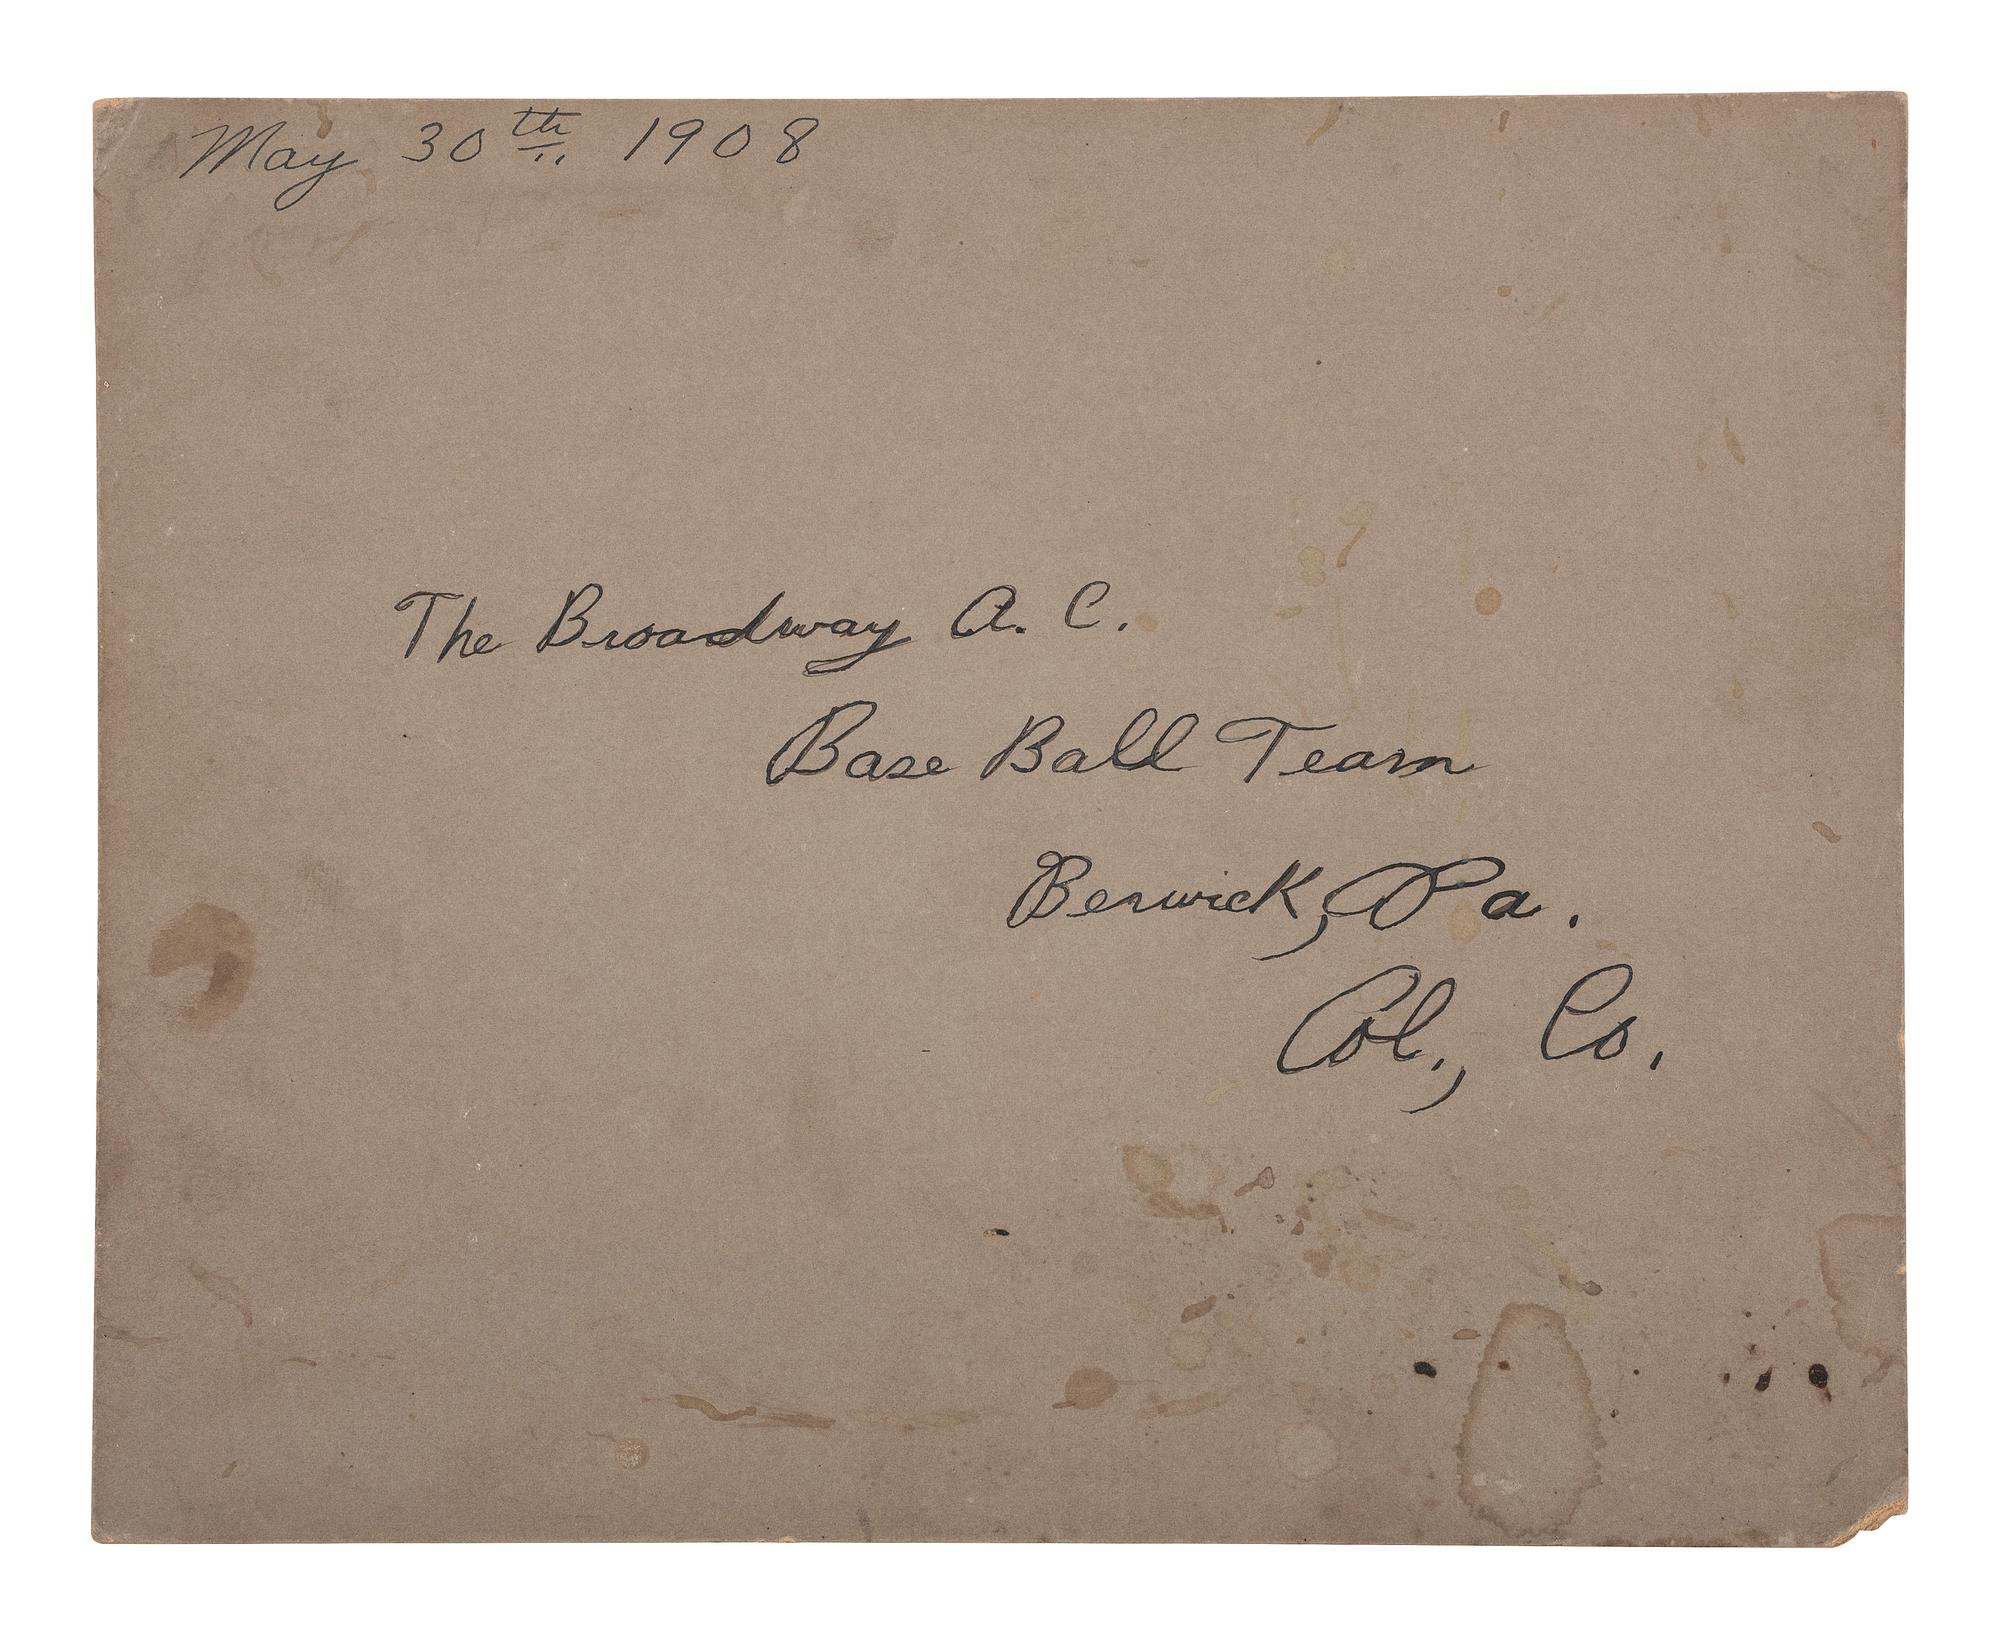 May 30th 1908
The Broadway A. C.
Base Ball Team
Berwick, Pa.
Col., Co.